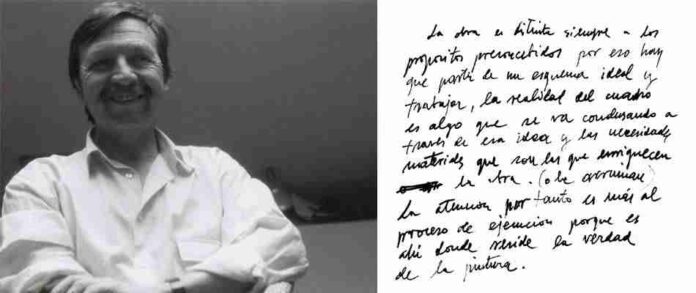 La obra es distinta siempre a los
propositos preconcebidos por eso hay
que partir de un esquema ideal y
trabajar, la realidad del cuadro
es algo que se va condensando a
través de esa idea y las necesidades
materiales que son las que enriquecen
la obra. (o la arruinan)
La atencion por tanto es más al
proceso de ejecucion porque es
ahí donde reside la verdad
de la pintura.